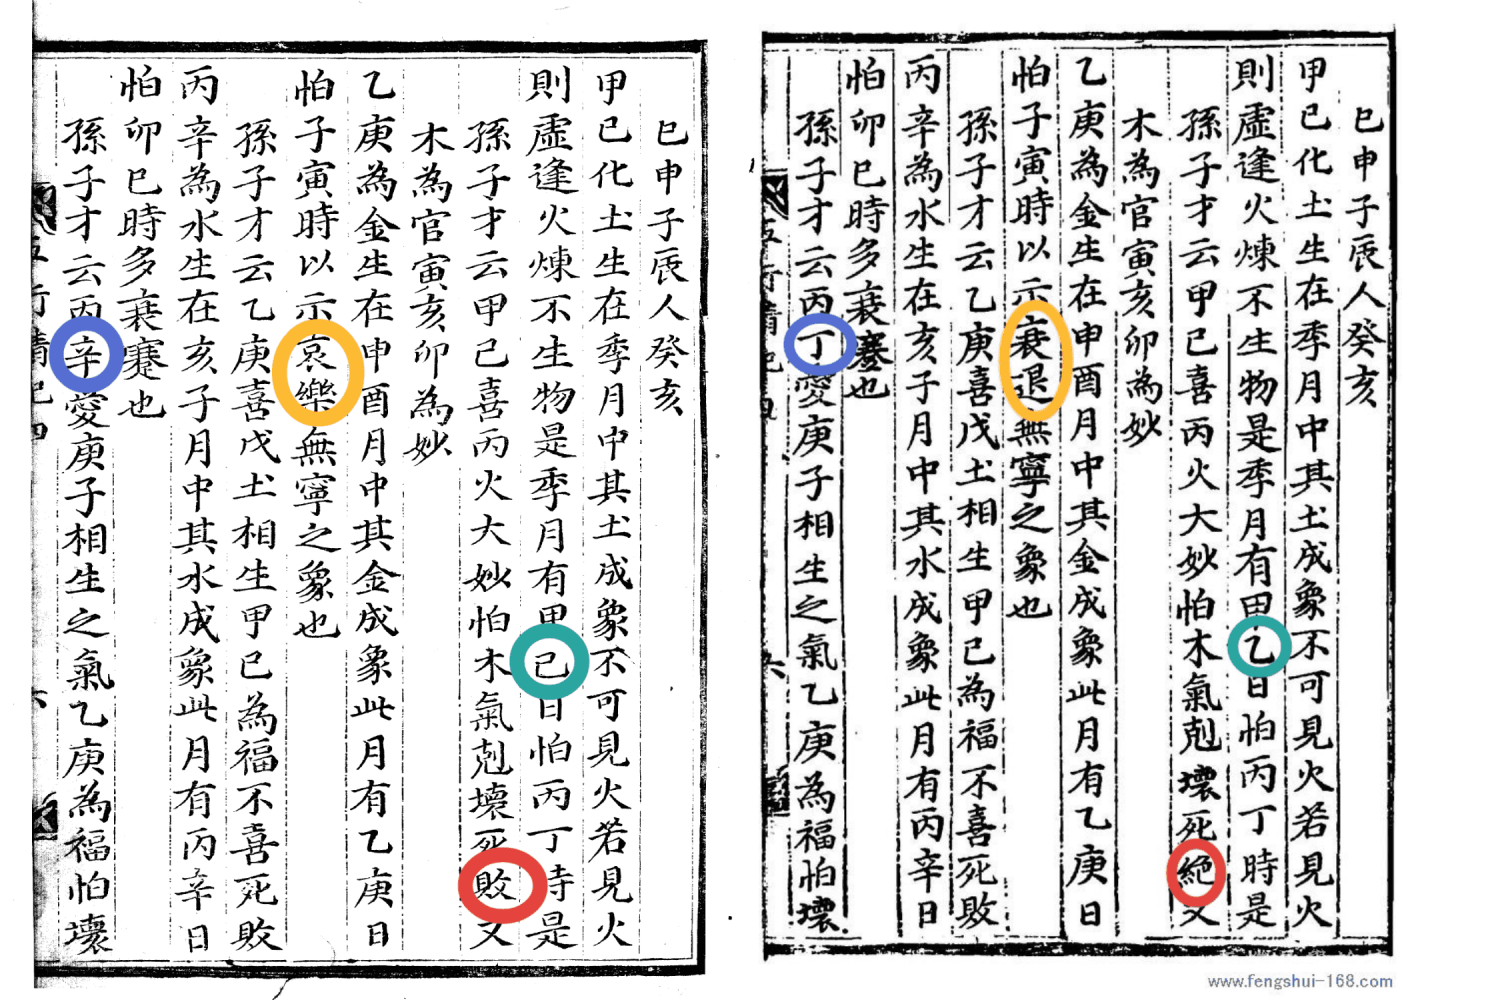 巳申子辰人癸亥
甲己化土生在季月中其土成象不可見火若見火
則虛逢火煉不生物是季月有甲己日怕丙丁時是
孫子才云甲己喜丙火大妙怕木氣剋壞死敗又
木為官寅亥卯為妙
乙庚為金生在申酉月中其金成象此月有乙庚日
怕子寅時以示哀樂無寧之象也
孫子才云乙庚喜戊土相生甲己為福不喜死敗
丙辛為水生在亥子月中其水成象此月有丙辛日
怕卯巳時多衰蹇也
孫子才云丙辛愛庚子相生之氣乙庚為福怕壞
巳申子辰人癸亥
甲己化土生在季月中其土成象不可見火若見火
則虛逢火煉不生物是季月有甲乙日怕丙丁時是
孫子才云甲己喜丙火大妙怕木氣剋壞死絕又
木為官寅亥卯為妙
乙庚為金生在申酉月中其金成象此月有乙庚日
怕子寅時以示衰退無寧之象也
孫子才云乙庚喜戊土相生甲己為福不喜死敗
丙辛為水生在亥子月中其水成象此月有丙辛日
怕卯巳時多衰蹇也
孫子才云丙丁愛庚子相生之氣乙庚為福怕壞
www.fengshui-168.com